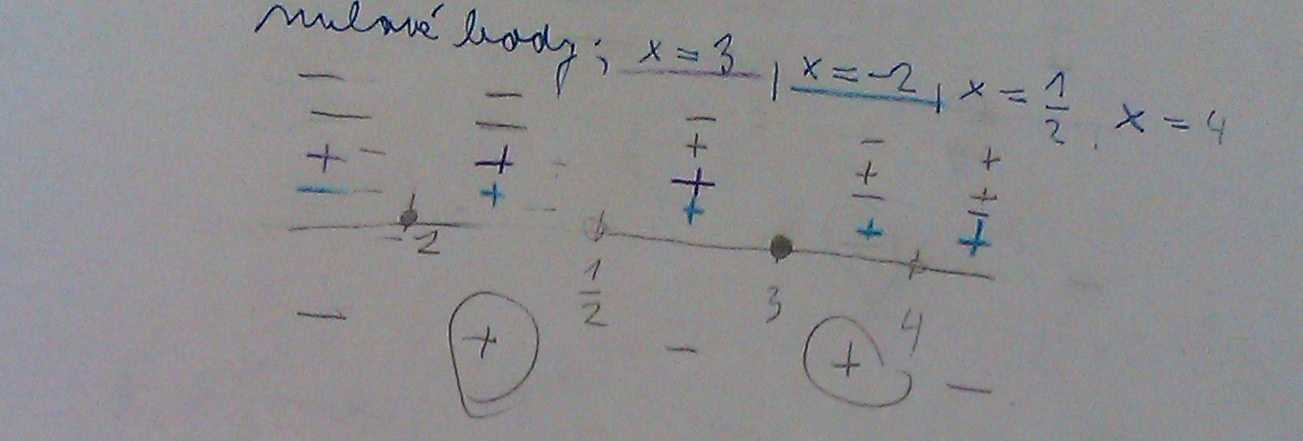 nulové body; x = 3, x = -2, x = 1/2, x = 4
− − − − +
− − + + +
+ − + + − −
− + + + +
-2 1/2 3 4
− + − + −